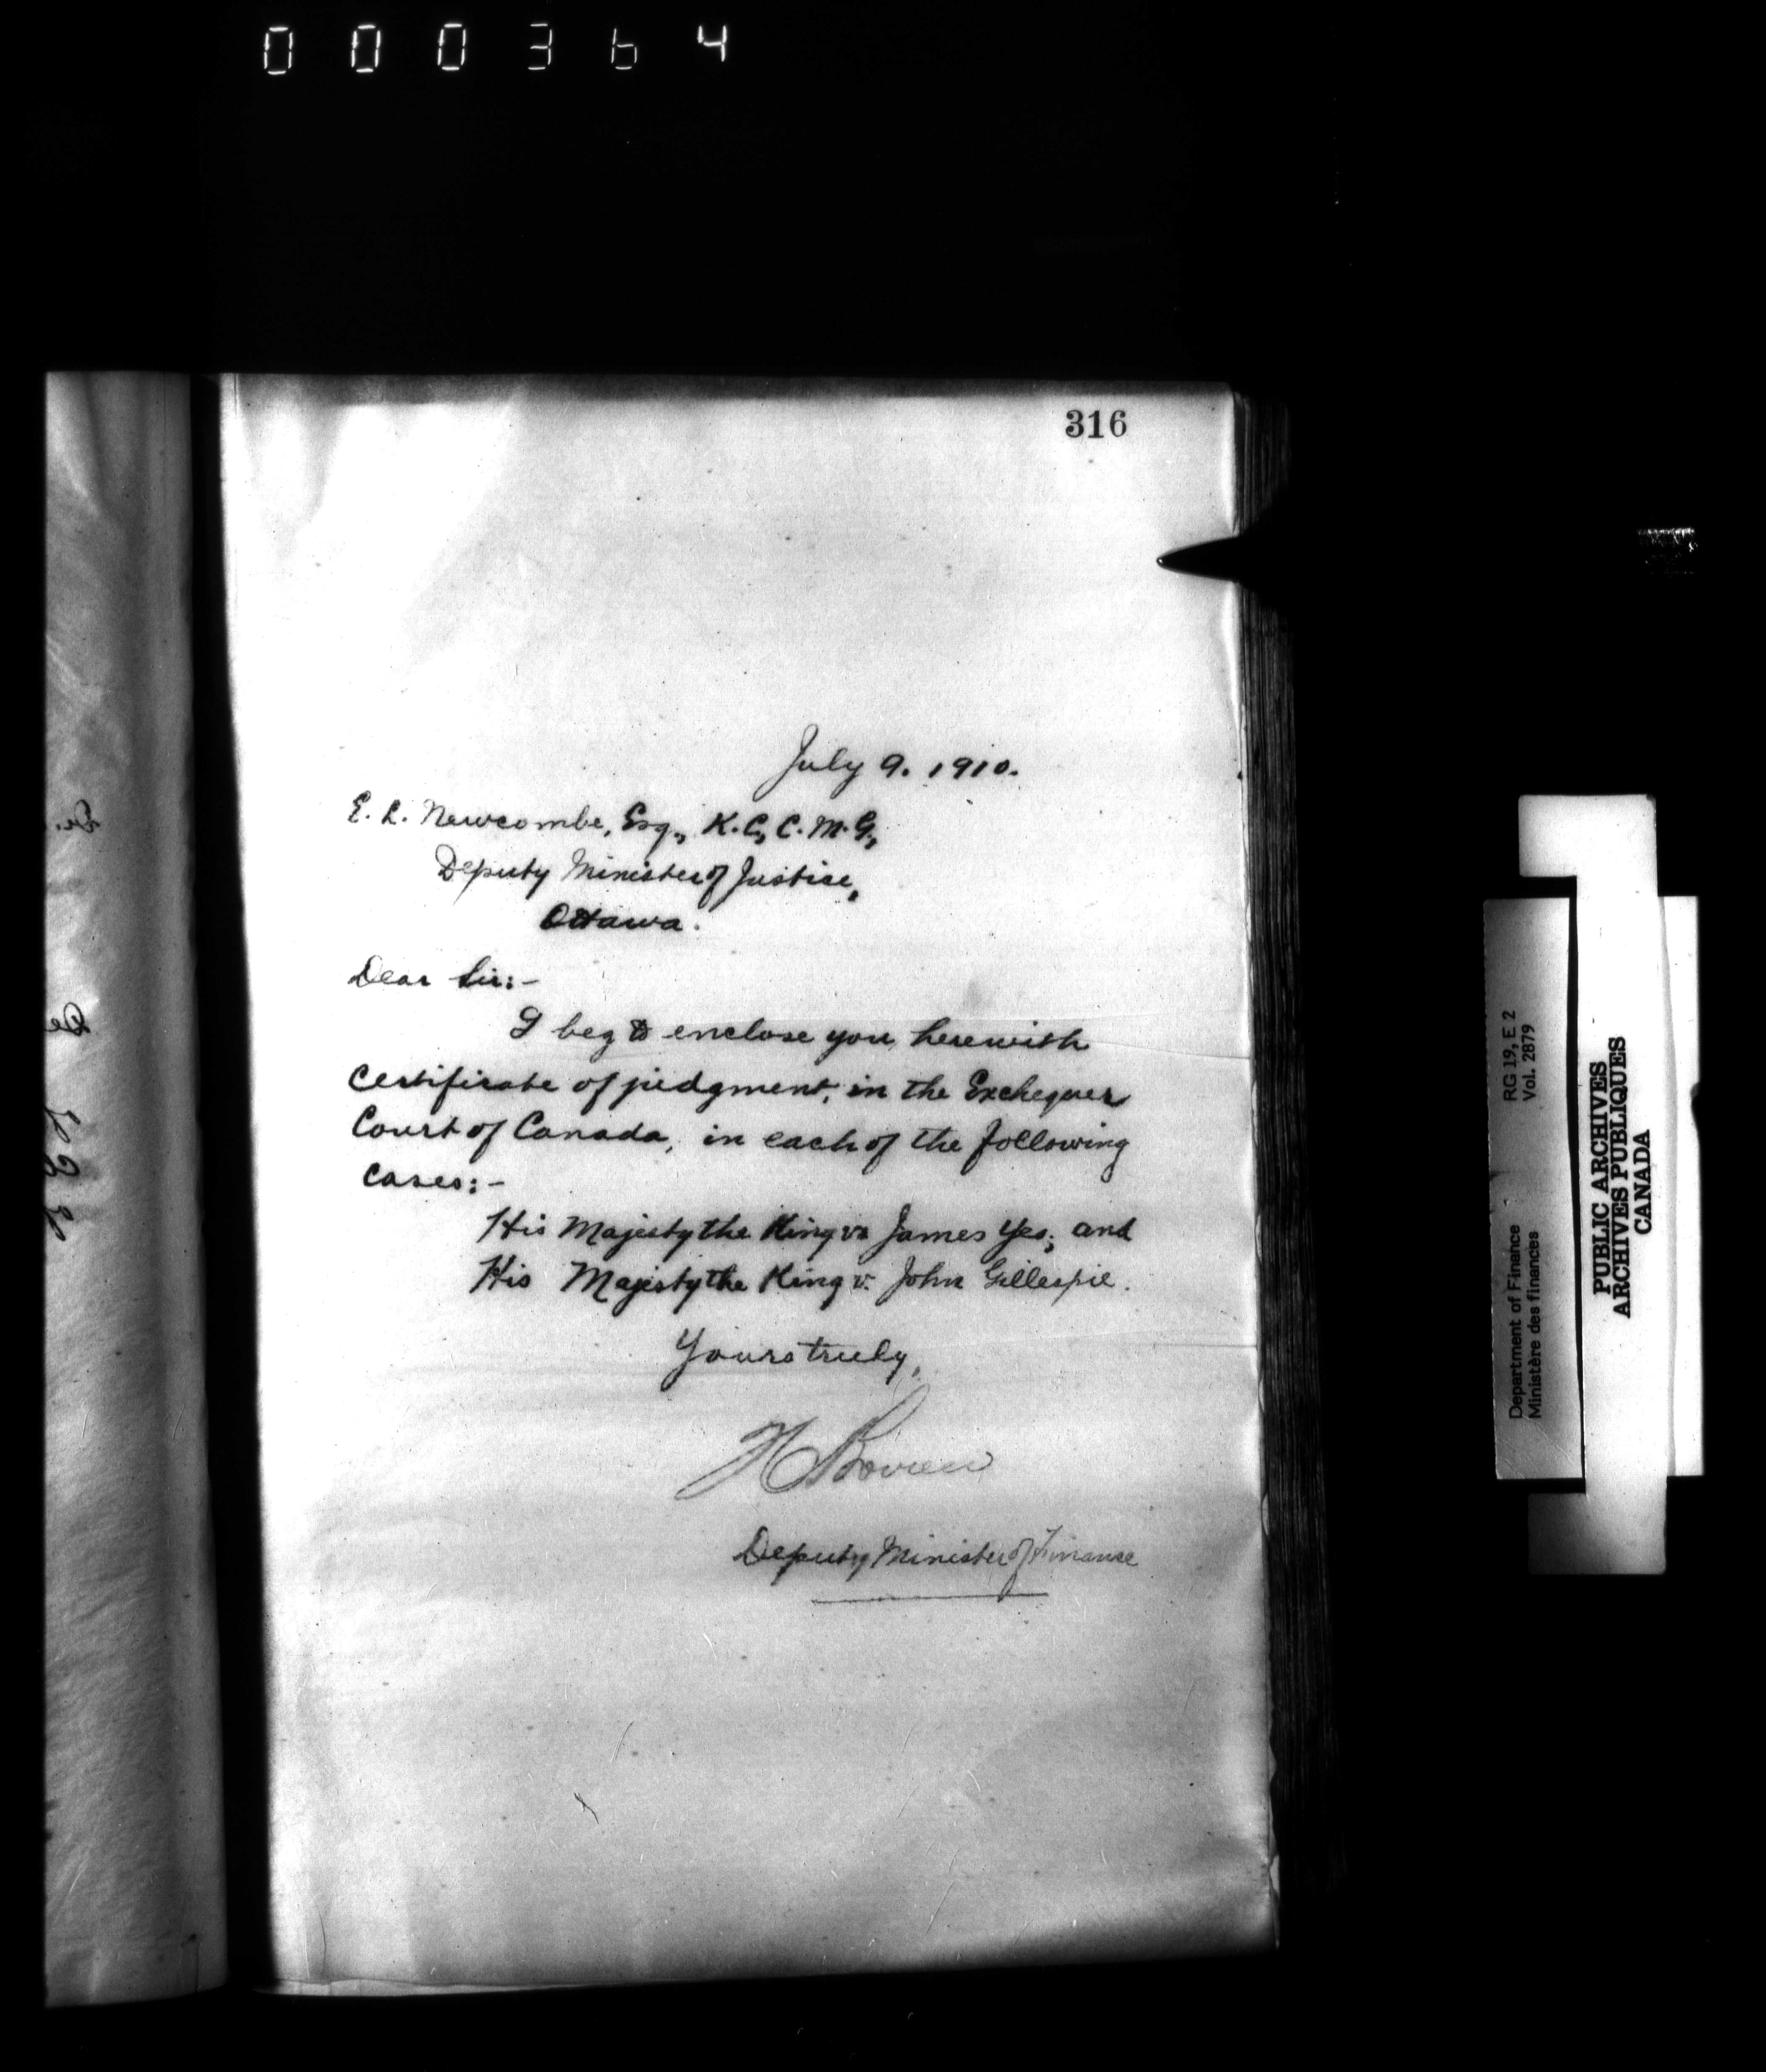 000364
316
July 9. 1910.
E. L. Newcombe, Esq., K.C., C.M.G.,
Deputy Minister of Justice,
Ottawa.
Dear Sir:-
I beg to enclose you herewith
certificate of judgment, in the Exchequer
Court of Canada, in each of the following
cases:-
His Majesty the King vs James Yeo; and
His Majesty the King v. John Gillespie.
Yours truly,
Deputy Minister of Finance
Department of Finance
Ministère des finances
RG 19, E 2
Vol. 2879
PUBLIC ARCHIVES
ARCHIVES PUBLIQUES
CANADA